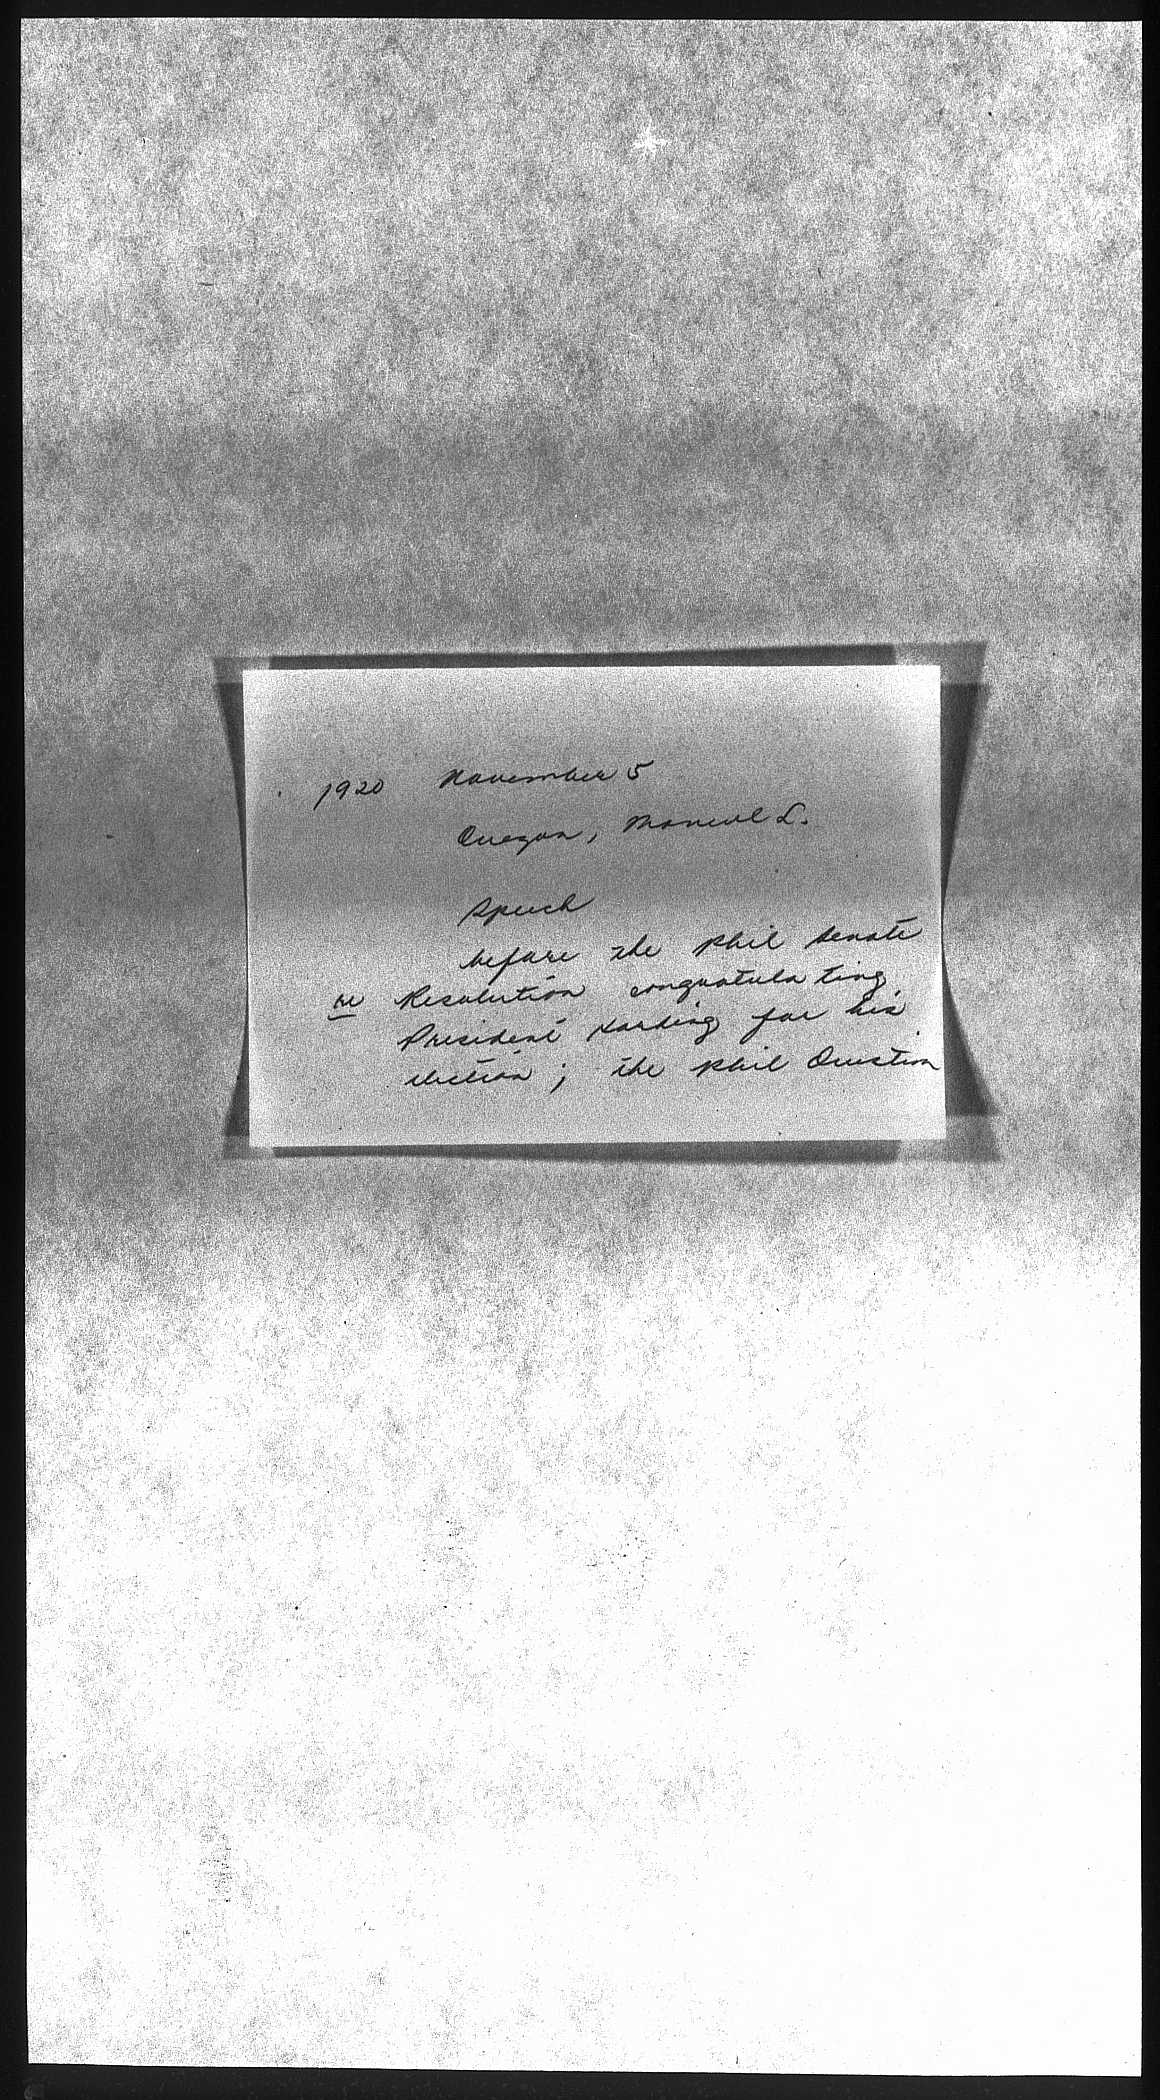 1920 November 5
Quezon, Manuel L.
Speech
before the Phil Senate
re Resolution congratulating
President Harding for his
election ; the Phil Question